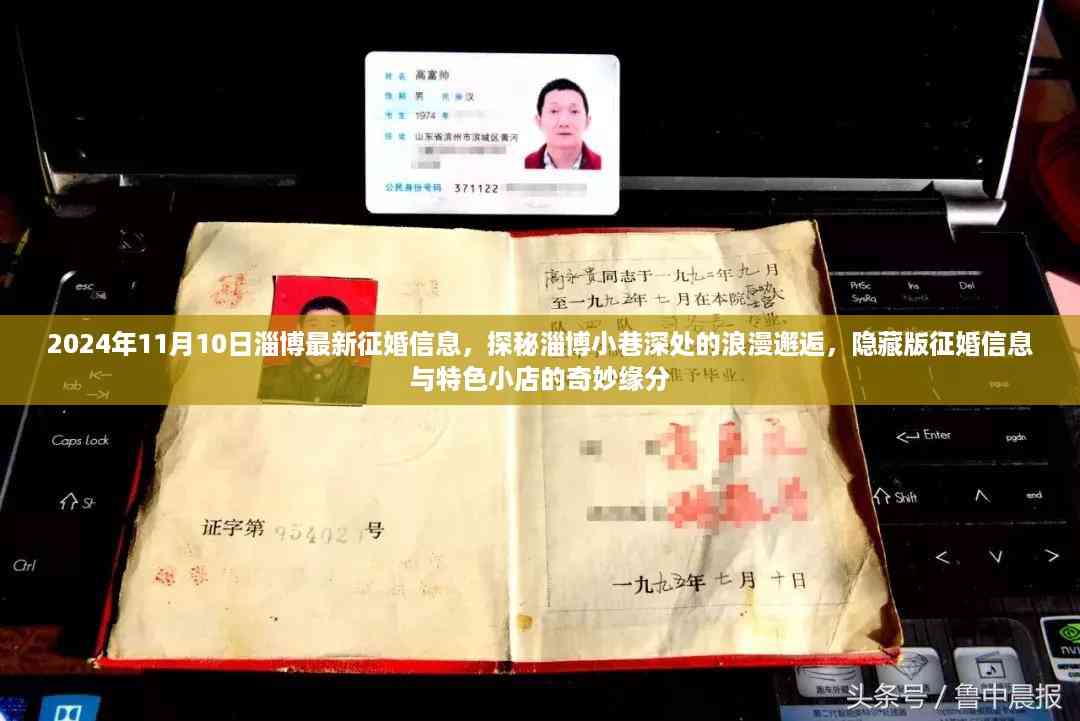 姓名 高富帅
性别 男 民族 汉
出生 1974 年
住址 山东省滨州市滨城区黄河
公民身份号码 371122
esc
PrtSc
SysRq
Ins
Del
高永贵同志于一九九二年九月
至一九九五年七月在本院
2024年11月10日淄博最新征婚信息，探秘淄博小巷深处的浪漫邂逅，隐藏版征婚信息
与特色小店的奇妙缘分
准予毕业.
tab
Caps Lock
Enter
pgdn
Shift
end
证字第 954021 号
Ctrl
一九九五年七月十日
头条号 / 鲁中晨报